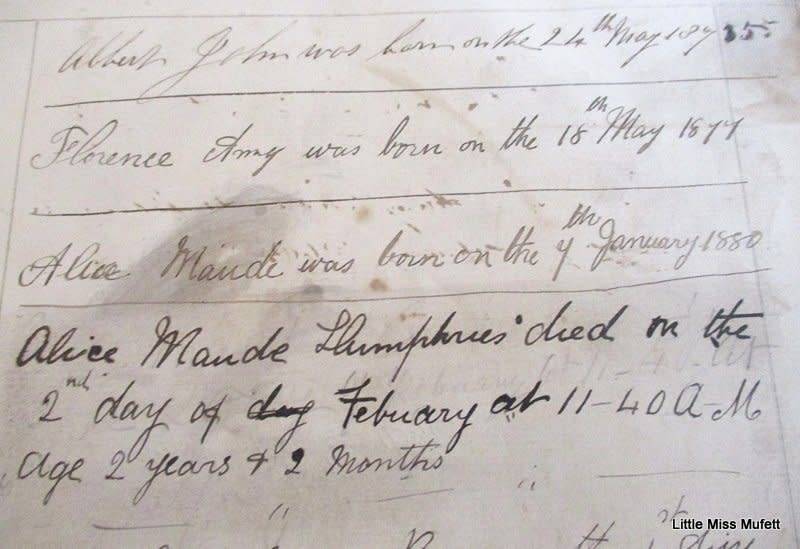 Albert John was born on the 24th May
Florence Amy was born on the 18th May 1877
Alice Maude was born on the 7th January 1880
Alice Maude Humphries died on the
2nd day of day Febuary at 11-40 A-M
Age 2 years & 2 Months
Little Miss Mufett